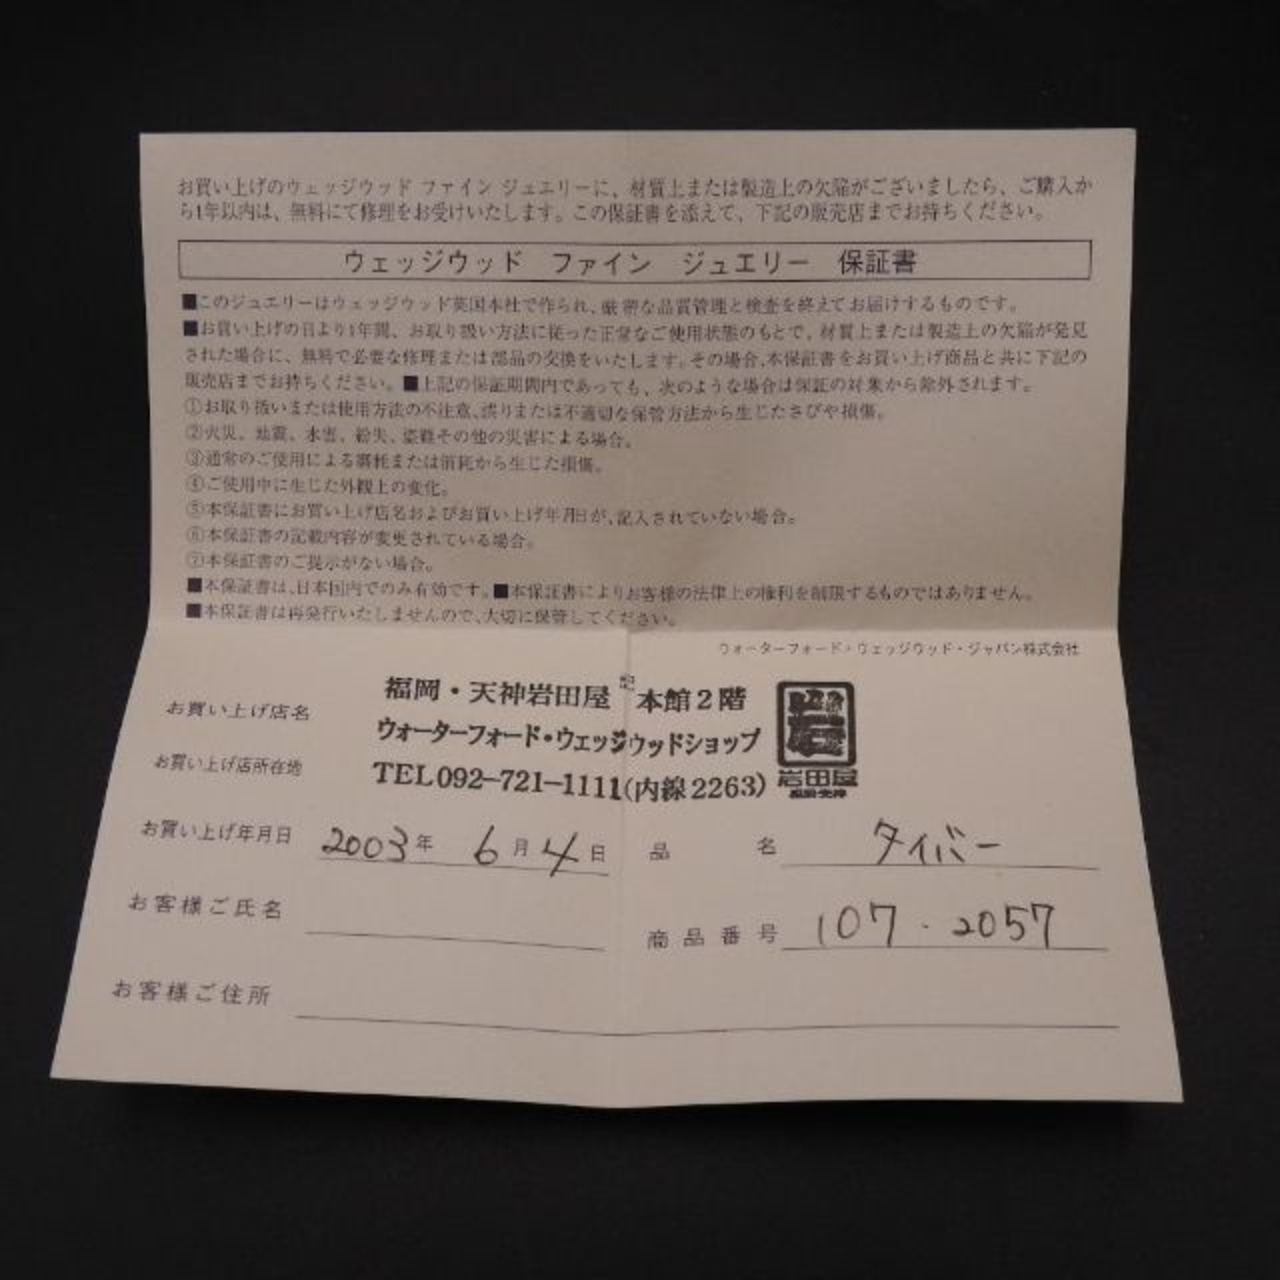 お買い上げのウェッジウッド ファイン ジュエリーに、材質上または製造上の欠陥がございましたら、ご購入か
ら1年以内は、無料にて修理をお受けいたします。この保証書を添えて、下記の販売店までお持ちください。
ウェッジウッド ファイン ジュエリー 保証書
■このジュエリーはウェッジウッド英国本社で作られ、厳密な品質管理と検査を終えてお届けするものです。
■お買い上げの日より1年間、お取り扱い方法に従った正常なご使用状態のもとで、材質上または製造上の欠陥が発見
された場合に、無料で必要な修理または部品の交換をいたします。その場合、本保証書をお買い上げ商品と共に下記の
販売店までお持ちください。■上記の保証期間内であっても、次のような場合は保証の対象から除外されます。
①お取り扱いまたは使用方法の不注意、誤りまたは不適切な保管方法から生じたさびや損傷。
②火災、地震、水害、紛失、盗難その他の災害による場合。
③通常のご使用による磨耗または消耗から生じた損傷。
④ご使用中に生じた外観上の変化。
⑤本保証書にお買い上げ店名およびお買い上げ年月日が、記入されていない場合。
⑥本保証書の記載内容が変更されている場合。
⑦本保証書のご提示がない場合。
■本保証書は、日本国内でのみ有効です。■本保証書によりお客様の法律上の権利を制限するものではありません。
■本保証書は再発行いたしませんので、大切に保管してください。
ウォーターフォード・ウェッジウッド・ジャパン株式会社
お買い上げ店名 福岡・天神岩田屋 本館2階
ウォーターフォード・ウェッジウッドショップ
お買い上げ店所在地 TEL092-721-1111(内線2263)
岩田屋
お買い上げ年月日 2003年 6月4日 品名 タイバー
お客様ご氏名
商品番号 107・2057
お客様ご住所